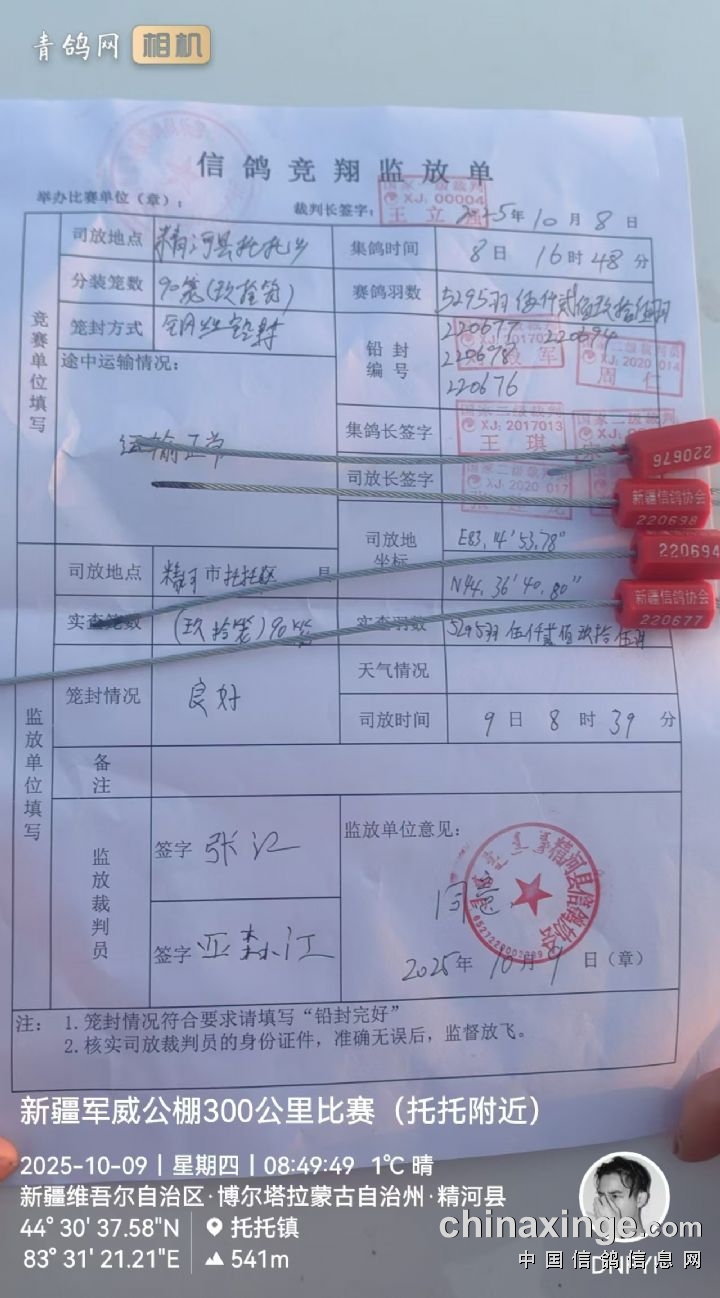 青鸽网 相机
信鸽竞翔监放单
举办比赛单位（章）：
裁判长签字：
XJ: 00004
王立
2025年10月8日
竞赛单位填写
司放地点 精河县托托乡 集鸽时间 8日16时48分
分装笼数 90笼(玖拾笼) 赛鸽羽数 5295羽 伍仟贰佰玖拾伍羽
笼封方式 钢丝铅封 铅封编号
220677 220694
220678
220676
军
国家二级裁判员
XJ: 2020 014
周仁
途中运输情况：
运输正常
集鸽长签字
国家二级裁判
XJ: 2017013
王琪
司放长签字
XJ: 2020 017
司放地坐标 E83.14'53.78"
N44.36'40.80"
220676
新疆信鸽协会
220698
220694
新疆信鸽协会
220677
监放单位填写
司放地点 精河市托托区 县
实查笼数 (玖拾笼)90笼 实查羽数 5295羽 伍仟贰佰玖拾伍羽
笼封情况 良好 天气情况
司放时间 9日8时39分
备注
监放裁判员
签字 张江
签字 亚森江
监放单位意见：
同意
精河县信鸽协会
2025年10月9日（章）
注： 1.笼封情况符合要求请填写“铅封完好”
2.核实司放裁判员的身份证件，准确无误后，监督放飞。
新疆军威公棚300公里比赛（托托附近）
2025-10-09 | 星期四 | 08:49:49 1℃ 晴
新疆维吾尔自治区·博尔塔拉蒙古自治州·精河县
44° 30' 37.58"N 托托镇
83° 31' 21.21"E 541m
chinaxinge.com
中国信鸽信息网